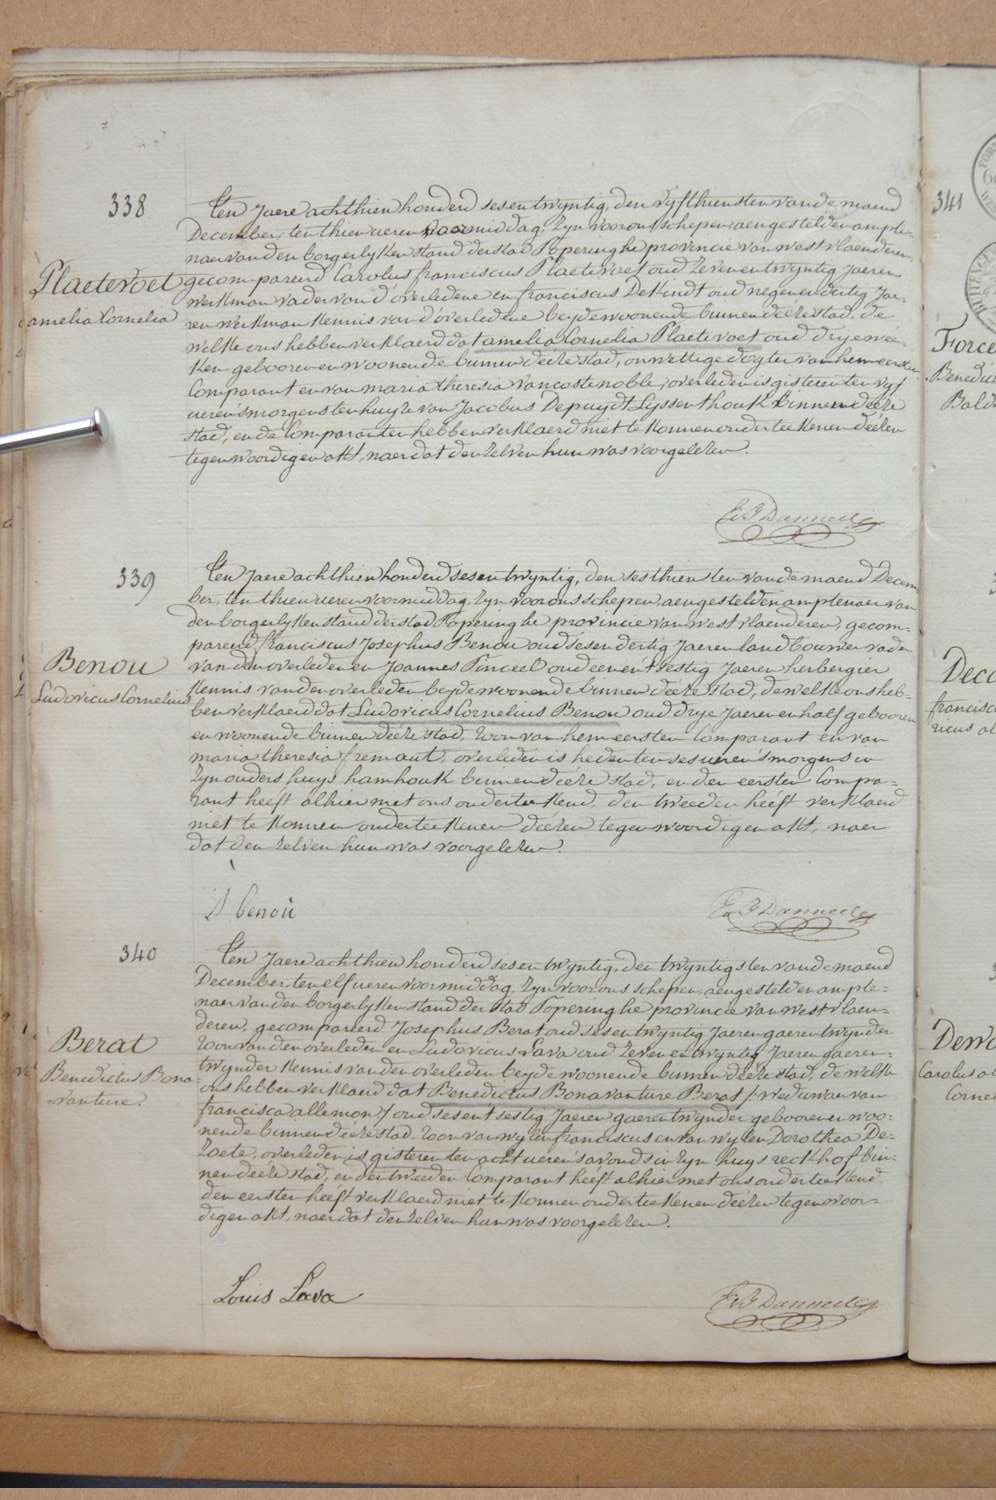 338
Ten Jaere achthien honderd sesentwyntig, den vyfthiensten van de maend
December, ten thien ueren voormiddag, Zyn voor ons schepen aengestelden ampte-
naer van den borgerlyken stand der stad Poperinghe provincie van westvlaenderen,
Plaetevoet
amelia Cornelia
gecompareerd Carolus franciscus Plaetevoet oud Zevenentwyntig Jaeren
werkman vader van d'overledene en franciscus DeKindt oud negenendertig Jae-
ren werkman Kennis van d'overledene beyde woonende binnen deéze stad, de
welke ons hebben verklaerd dat amelia Cornelia Plaetevoet oud drye we-
ken gebooren en woonende binnen deéze stad, onwettige dogter van hem eersten
Comparant en van maria theresia Vancostenoble, overleden is gisteren ten vyf
ueren smorgens ten huyze van Jacobus Depuydt Lyssenthouk binnen deéze
stad, en de Comparanten hebben verklaerd niet te konnen onderteekenen deézen
tegenwoordigen akt, naer dat den zelven hun was voorgelezen.
339
Ten Jaere achthien honderd sesentwyntig, den sesthiensten van de maend Decem-
ber, ten thien ueren voormiddag, Zyn voor ons schepen aengestelden amptenaer van
den borgerlyken stand der stad Poperinghe provincie van westvlaenderen, gecom-
pareerd franciscus Josephus Benou oud sesendertig Jaeren landbouwer vader
Benou
Ludovicus Cornelius
van den overleden en Joannes Pinceel oud eenentsestig Jaeren herbergier
Kennis van den overleden beyde woonende binnen deéze stad, de welke ons heb-
ben verklaerd dat Ludovicus Cornelius Benou oud drye Jaeren en half gebooren
en woonende binnen deéze stad, Zoon van hem eersten Comparant en van
maria theresia fremaut, overleden is heden ten ses ueren smorgens in
Zyn ouders huys hamhouk binnen deéze stad, en den eersten Compa-
rant heeft alhier met ons onderteekend, den tweeden heéft verklaerd
niet te konnen onderteekenen deézen tegenwoordigen akt, naer
dat den zelven hun was voorgelezen.
benoù
340
Ten Jaere achthien honderd sesentwyntig, den twyntigsten van de maend
December, ten elf ueren voormiddag, Zyn voor ons schepen aengestelden ampte-
naer van den borgerlyken stand der stad Poperinghe provincie van westvlaen-
deren, gecompareerd Josephus Berat oud sesentwyntig Jaeren gaerentwynder
Berat
Benedictus Bona-
vanture.
Zoon van den overleden en Ludovicus Lava oud Zevenentwyntig Jaeren gaeren-
twynder Kennis van den overleden beyde woonende binnen deéze stad, de welke
ons hebben verklaerd dat Benedictus Bonavanture Berat weduwaer van
francisca allemon oud sesentsestig Jaeren gaerentwynder gebooren en woo-
nende binnen deéze stad, Zoon van wylen franciscus en van wylen Dorothea De-
Zoete, overleden is gisteren ten acht ueren s'avonds in Zyn huys reckhof bin-
nen deéze stad, en den tweeden Comparant heéft alhier met ons onderteekend,
den eersten heéft verklaerd niet te konnen onderteekenen deézen tegenwoor-
digen akt, naer dat den zelven hun was voorgelezen.
Louis Lava
341